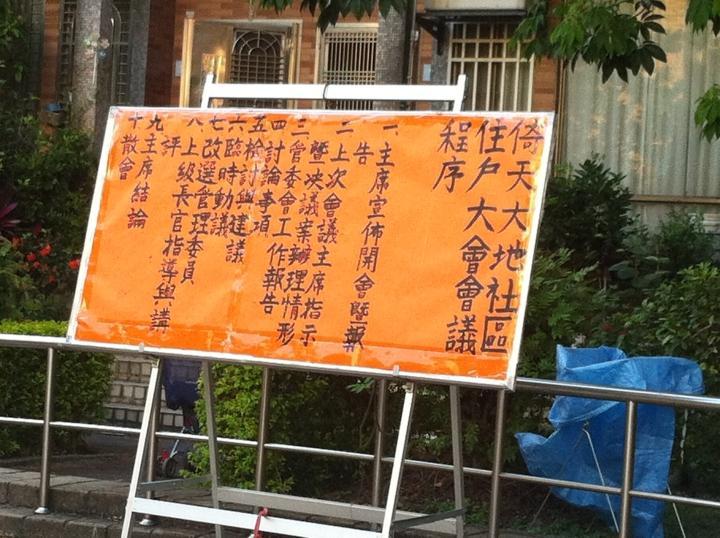 倚天大地社區
住戶大會會議
程序
一、主席宣佈開會暨報
告
二、上次會議主席指示
暨決議案辦理情形
三管委會工作報告
四討論事項
五檢討與建議
六臨時動議
七改選管理委員
八、上級長官指導與講
評
九主席結論
十散會